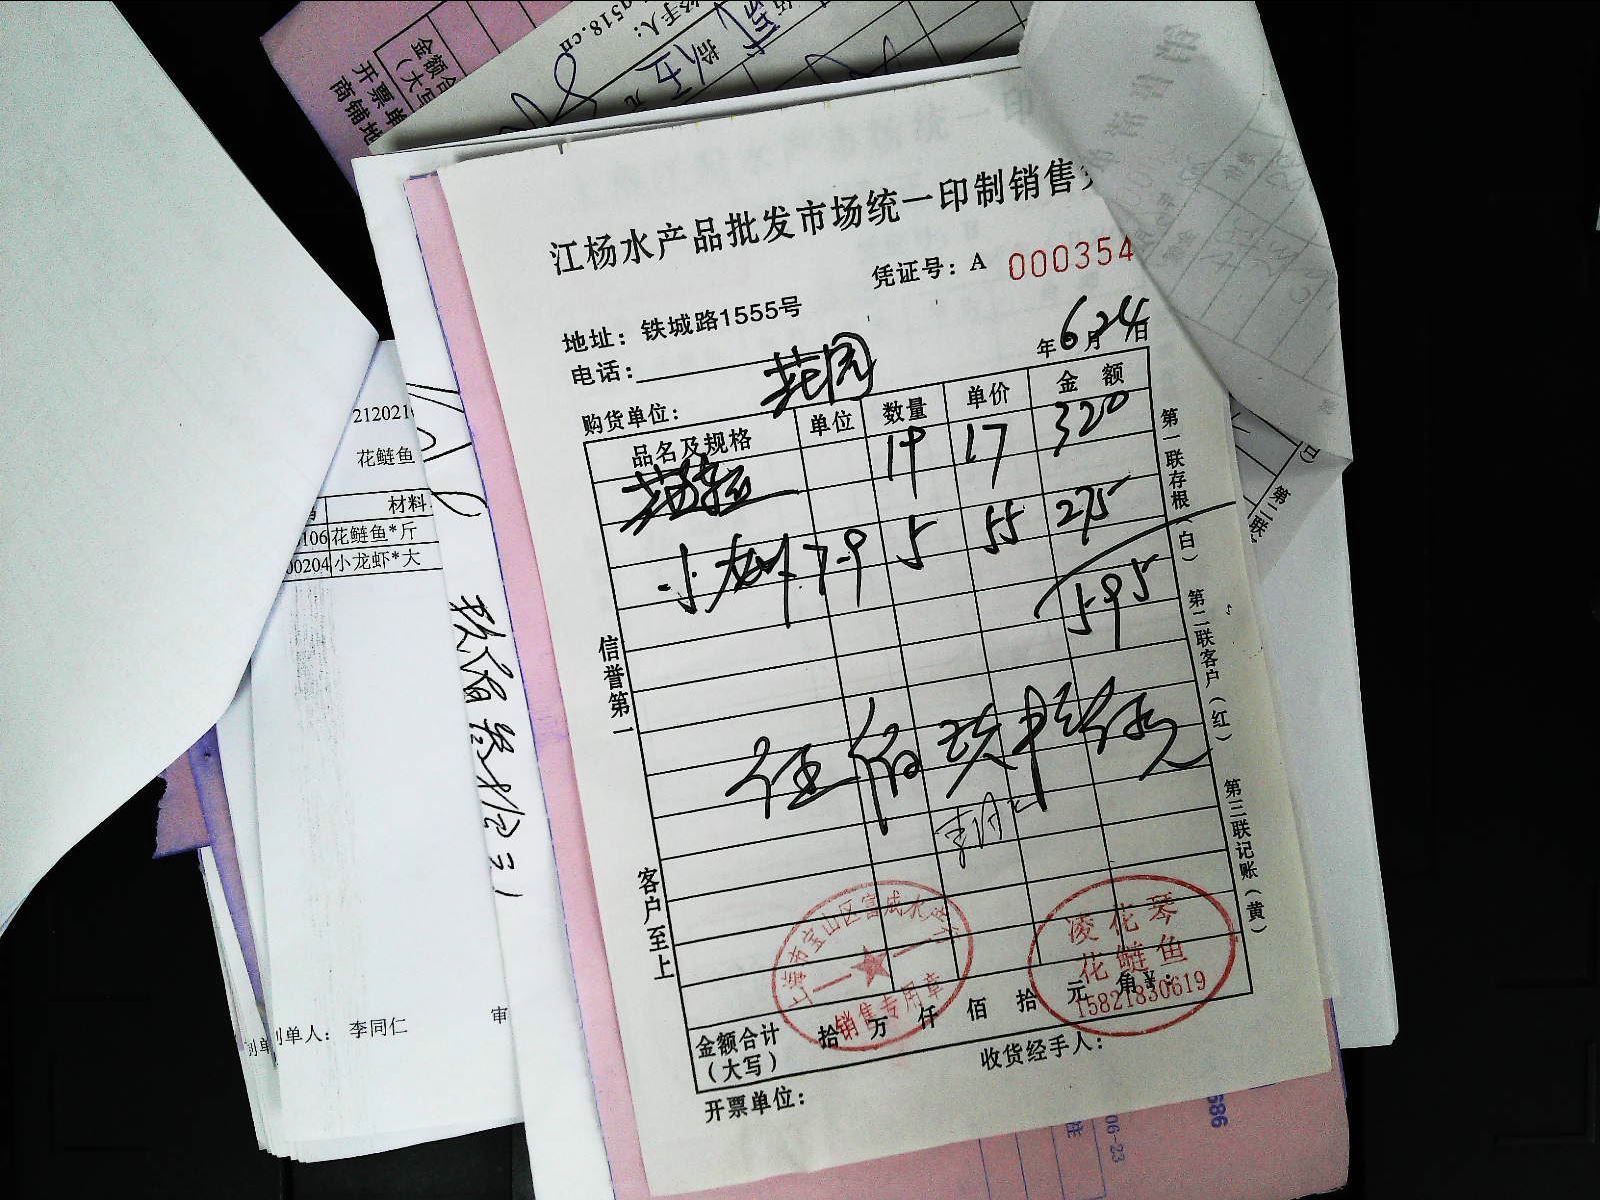 江杨水产品批发市场统一印制销售
凭证号：A 000354
地址：铁城路1555号
电话：
年6月24日
购货单位： 花园
品名及规格 单位 数量 单价 金额
花鲢 19 17 320
小龙虾 7-9 5 55 275
595
伍佰玖拾伍元
信誉第一
客户至上
第一联存根（白） 第二联客户（红） 第三联记账（黄）
销售专用章
凌花琴
花鲢鱼
15821830619
金额合计（大写） 拾 万 仟 佰 拾 元 角 ¥：
收货经手人：
开票单位：
花鲢鱼
材料
106 花鲢鱼*斤
00204 小龙虾*大
制单人： 李同仁
审
金额合
（大写
开票单
商铺地
518.cn
手人：
拾
元
第二联
06-23
686